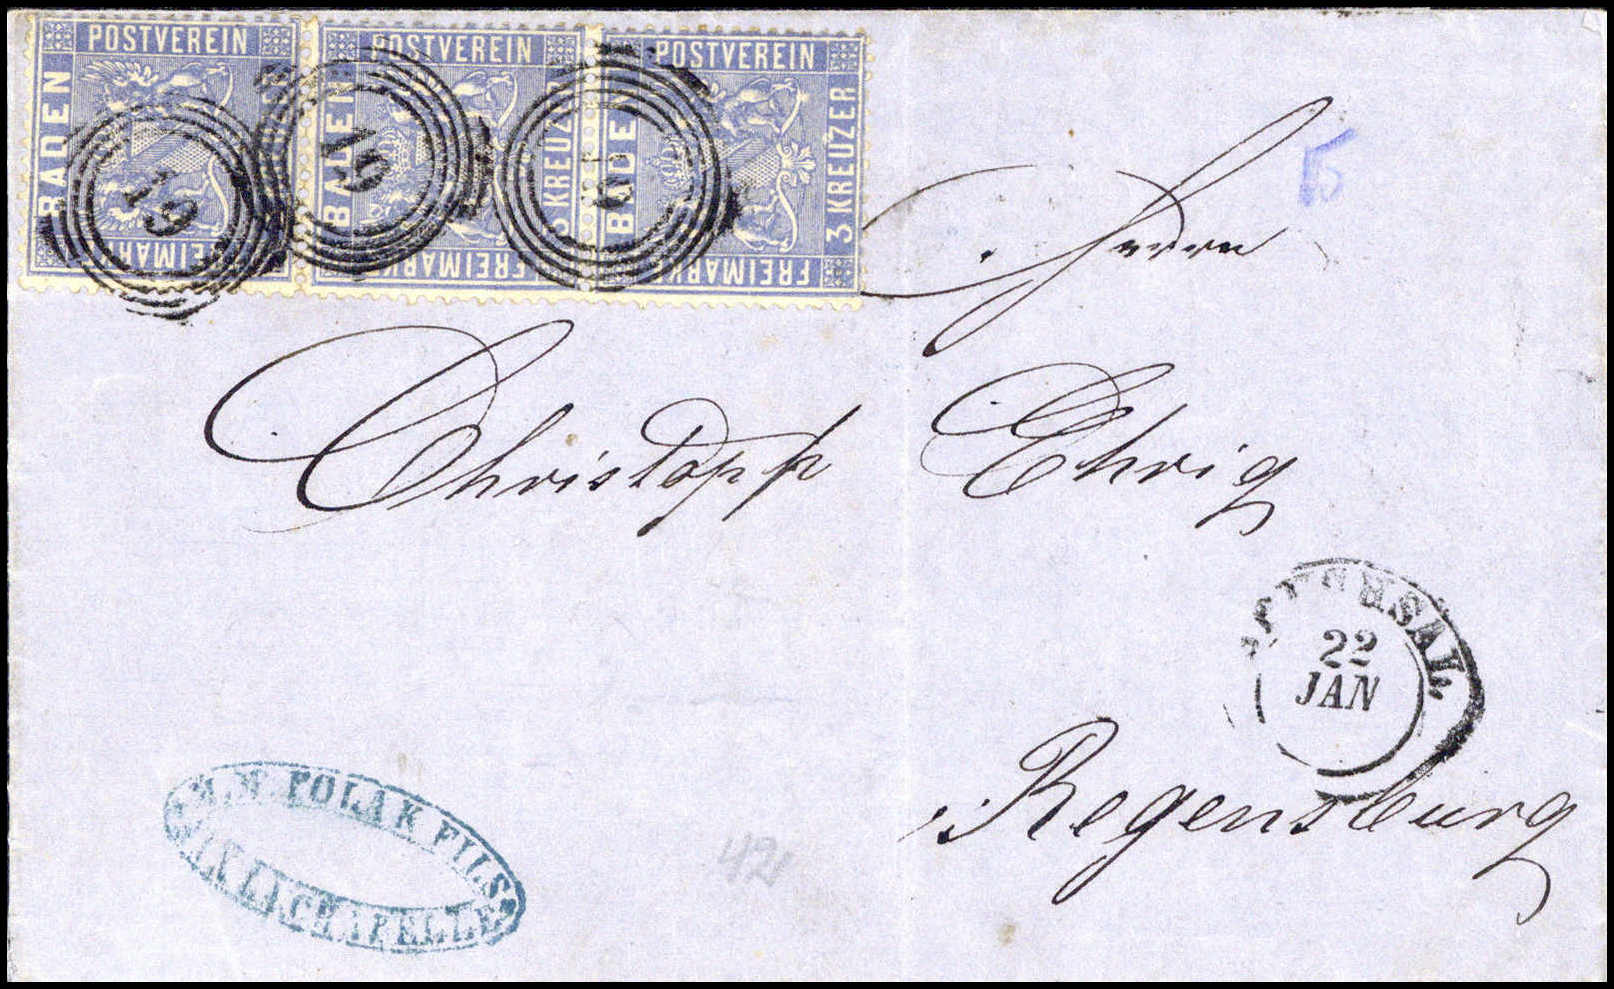 POSTVEREIN POSTVEREIN POSTVEREIN
BADEN BADEN BADEN
3 KREUZER 3 KREUZER
FREIMARKE FREIMARKE FREIMARKE
19 19 19
5
Herrn
Christoph Ehrig
BRUCHSAL
22
JAN
Regensburg
POLAK FILS
AIX LA CHAPELLE
42